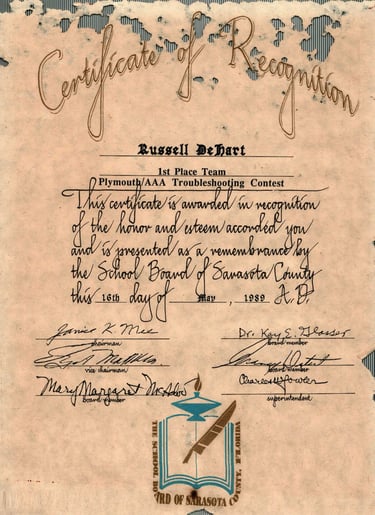 Certificate of Recognition
Russell DeHart
1st Place Team
Plymouth/AAA Troubleshooting Contest
This certificate is awarded in recognition
of the honor and esteem accorded you
and is presented as a remembrance by
the School Board of Sarasota County
this 16th day of May, 1989 A.D.
Janice K. Mee
Dr. Kay E. Glasser
chairman
board member
vice chairman
board member
Mary Margaret
Charles W. Fowler
board member
superintendent
THE SCHOOL BOARD OF SARASOTA COUNTY, FLORIDA